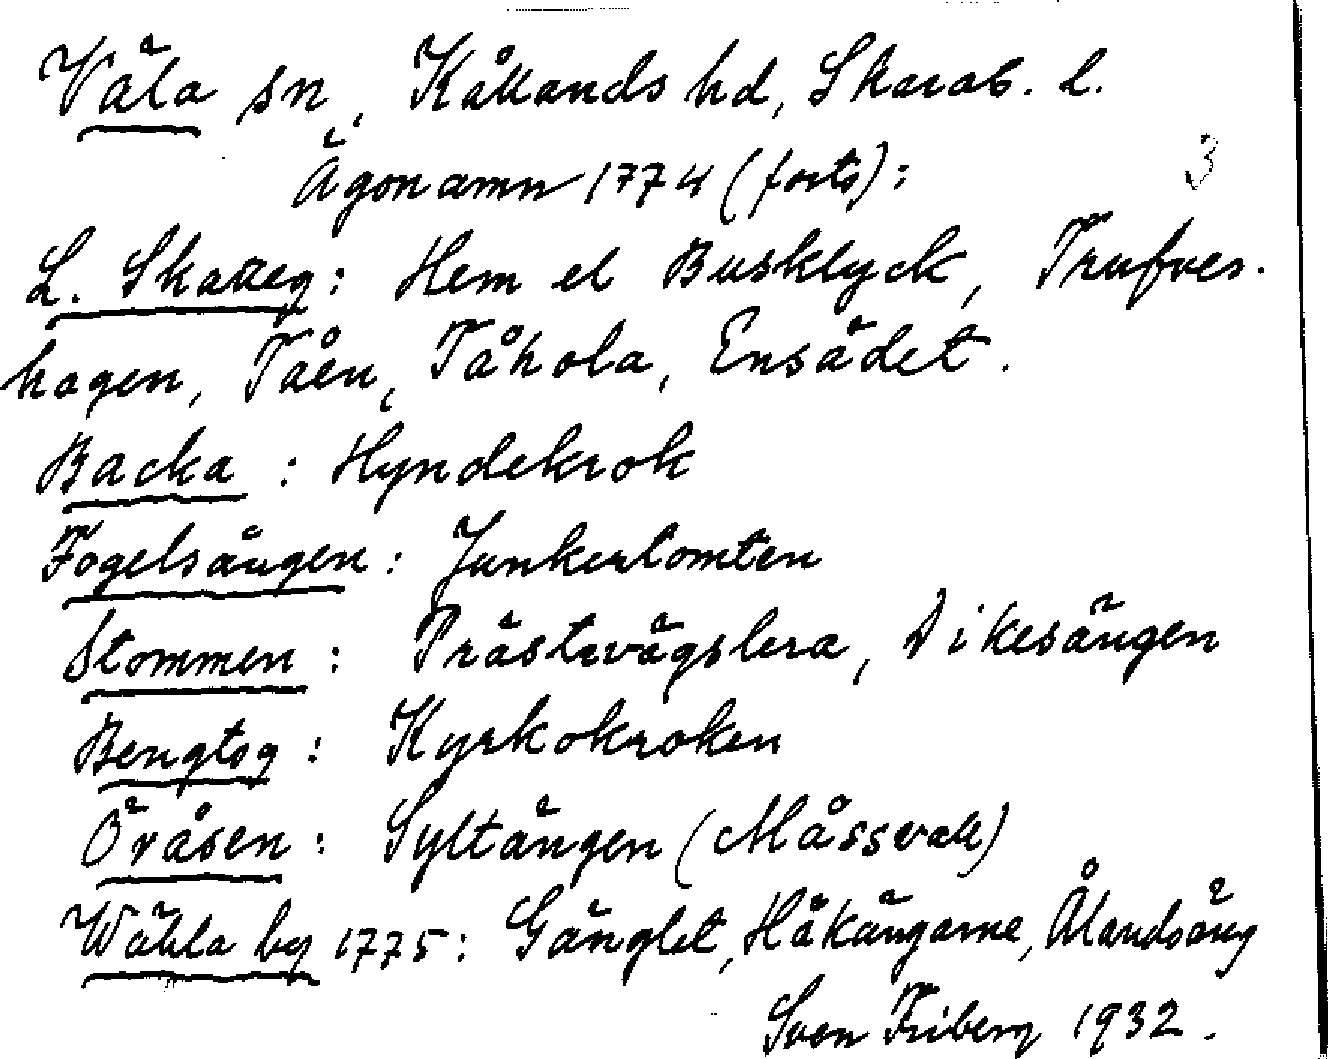 Väla sn, Kållands hd, Skarab. l.
Ägonamn 1774 (forts):
3
L. Skatteg: Hem el Busklyck, Trufves-
hagen, Tåen, Tåhola, Ensädet.
Backa: Hyndekrok
Fogelsängen: Junkerstomten
Stommen: Prästevägslera, Dikesängen
Bengtsg: Kyrkokroken
Öråsen: Syltängen (Måssvall)
Wähla by 1775: Gänglet, Håkängarne, Ålandsäng
Sven Friberg 1932.